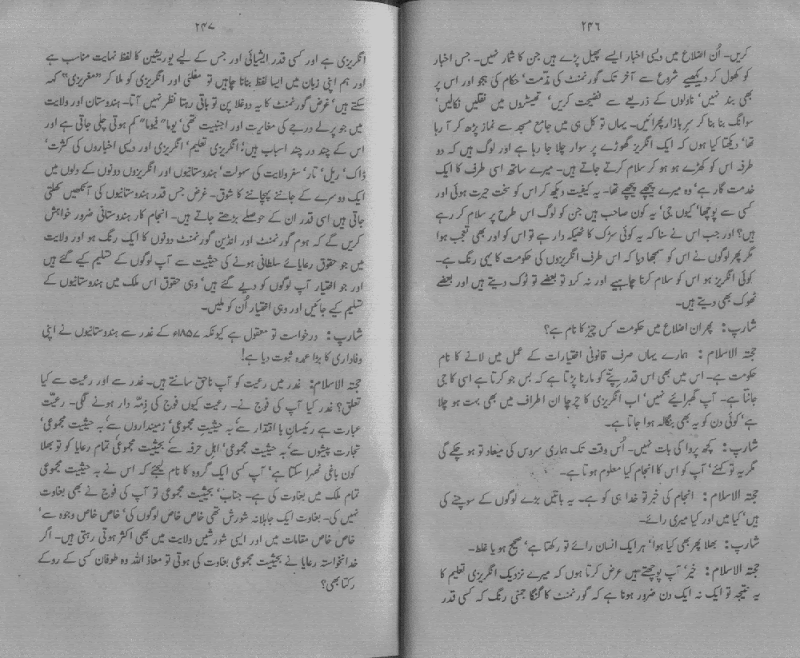 ۲۴۶
کریں۔ اُن اضلاع میں دیسی اخبار ایسے پھیل پڑے ہیں جن کا شمار نہیں۔ جس اخبار
کو کھول کر دیکھیے شروع سے آخر تک گورنمنٹ کی مذمت، حکام کی ہجو اور اس پر
بھی بند نہیں، ناولوں کے ذریعے سے فضیحت کریں، تھیٹروں میں نقلیں نکالیں،
سوانگ بنا بنا کر سرِ بازار پھرائیں۔ یہاں تو کل ہی میں جامع مسجد سے نماز پڑھ کر آ رہا
تھا، دیکھتا کیا ہوں کہ ایک انگریز گھوڑے پر سوار چلا جا رہا ہے اور لوگ ہیں کہ دو
طرفہ اس کو کھڑے ہو ہو کر سلام کرتے جاتے ہیں۔ میرے ساتھ اسی طرف کا ایک
خدمت گار ہے، وہ میرے پیچھے پیچھے تھا۔ یہ کیفیت دیکھ کر اس کو سخت حیرت ہوئی اور
کسی سے پوچھا، کیوں جی، یہ کون صاحب ہیں جن کو لوگ اس طرح پر سلام کر رہے
ہیں؟ اور جب اس نے سنا کہ یہ کوئی سڑک کا ٹھیکہ دار ہے تو اس کو اور بھی تعجب ہوا
مگر پھر لوگوں نے اس کو سمجھا دیا کہ اس طرف انگریزوں کی حکومت کا یہی رنگ ہے۔
کوئی انگریز ہو اس کو سلام کرنا چاہیے اور نہ کرو تو بعضے تو ٹوک دیتے ہیں اور بعضے
ٹھوک بھی دیتے ہیں۔
شارپ: پھر ان اضلاع میں حکومت کس چیز کا نام ہے؟
حجتہ الاسلام: ہمارے یہاں صرف قانونی اختیارات کے عمل میں لانے کا نام
حکومت ہے۔ اس میں بھی اس قدر پتے کو مارنا پڑتا ہے کہ بس جو کرتا ہے اسی کا جی
جانتا ہے۔ آپ گھبرائیے نہیں، اب انگریزی کا چرچا ان اطراف میں بھی بہت ہو چلا
ہے، کوئی دن کو یہ بھی بنگالہ ہوا جاتا ہے۔
شارپ: کچھ پروا کی بات نہیں۔ اُس وقت تک ہماری سروس کی میعاد تو ہو چکے گی
مگر یہ تو کہئے، آپ کو اس کا انجام کیا معلوم ہوتا ہے۔
حجتہ الاسلام: انجام کی خبر تو خدا ہی کو ہے۔ یہ باتیں بڑے لوگوں کے سوچنے کی
ہیں، کیا میں اور کیا میری رائے۔
شارپ: بھلا پھر بھی کیا ہوا، ہر ایک انسان رائے تو رکھتا ہے، صحیح ہو یا غلط۔
حجتہ الاسلام: خیر، آپ پوچھتے ہیں عرض کرتا ہوں کہ میرے نزدیک انگریزی تعلیم کا
یہ نتیجہ تو ایک نہ ایک دن ضرور ہونا ہے کہ گورنمنٹ کا گنگا جمنی رنگ کہ کسی قدر
۲۴۷
انگریزی ہے اور کسی قدر ایشیائی اور جس کے لیے یوریشین کا لفظ نہایت مناسب ہے
اور ہم اپنی زبان میں ایسا لفظ بنانا چاہیں تو مغلئی اور انگریزی کو ملا کر ”مغریزی“ کہہ
سکتے ہیں، غرض گورنمنٹ کا یہ دوغلا پن تو باقی رہتا نظر نہیں آتا۔ ہندوستان اور ولایت
میں جو پرلے درجے کی مغایرت اور اجنبیت تھی، یوماً فیوماً کم ہوتی چلی جاتی ہے اور
اس کے چند در چند اسباب ہیں؛ انگریزی تعلیم، انگریزی اور دیسی اخباروں کی کثرت،
ڈاک، ریل، تار، سفر ولایت کی سہولت، ہندوستانیوں اور انگریزوں دونوں کے دلوں میں
ایک دوسرے کے جاننے پہچاننے کا شوق۔ غرض جس قدر ہندوستانیوں کی آنکھیں کھلتی
جاتی ہیں اسی قدر ان کے حوصلے بڑھتے جاتے ہیں۔ انجام کار ہندوستانی ضرور خواہش
کریں گے کہ ہوم گورنمنٹ اور انڈین گورنمنٹ دونوں کا ایک رنگ ہو اور ولایت
میں جو حقوق رعایائے سلطانی ہونے کی حیثیت سے آپ لوگوں کے تسلیم کیے گئے ہیں
اور جو اختیار آپ لوگوں کو دیے گئے ہیں، وہی حقوق اس ملک میں ہندوستانیوں کے
تسلیم کیے جائیں اور وہی اختیار اُن کو ملیں۔
شارپ: درخواست تو معقول ہے کیونکہ ۱۸۵۷ء کے غدر سے ہندوستانیوں نے اپنی
وفاداری کا بڑا عمدہ ثبوت دیا ہے!
حجتہ الاسلام: غدر میں رعیت کو آپ ناحق سانتے ہیں۔ غدر سے اور رعیت سے کیا
تعلق؟ غدر کیا آپ کی فوج نے۔ رعیت کیوں فوج کی ذِمّہ دار ہونے لگی۔ رعیّت
عبارت ہے رئیسانِ با اقتدار سے بہ حیثیتِ مجموعی، زمینداروں سے بہ حیثیت مجموعی،
تجارت پیشوں سے بہ حیثیت مجموعی، اہل حرفہ سے بحیثیت مجموعی تمام رعایا کو تو بھلا
کون باغی ٹھہرا سکتا ہے، آپ کسی ایک گروہ کا نام لیجئے کہ اس نے بہ حیثیت مجموعی
تمام ملک میں بغاوت کی ہے۔ جناب، بحیثیت مجموعی تو آپ کی فوج نے بھی بغاوت
نہیں کی۔ بغاوت ایک جاہلانہ شورش تھی خاص خاص لوگوں کی، خاص خاص وجوہ سے،
خاص خاص مقامات میں اور ایسی شورشیں ولایت میں بھی اکثر ہوتی رہتی ہیں۔ اگر
خدانخواستہ رعایا نے بحیثیت مجموعی بغاوت کی ہوتی تو معاذ اللہ وہ طوفان کسی کے روکے
رکتا بھی؟